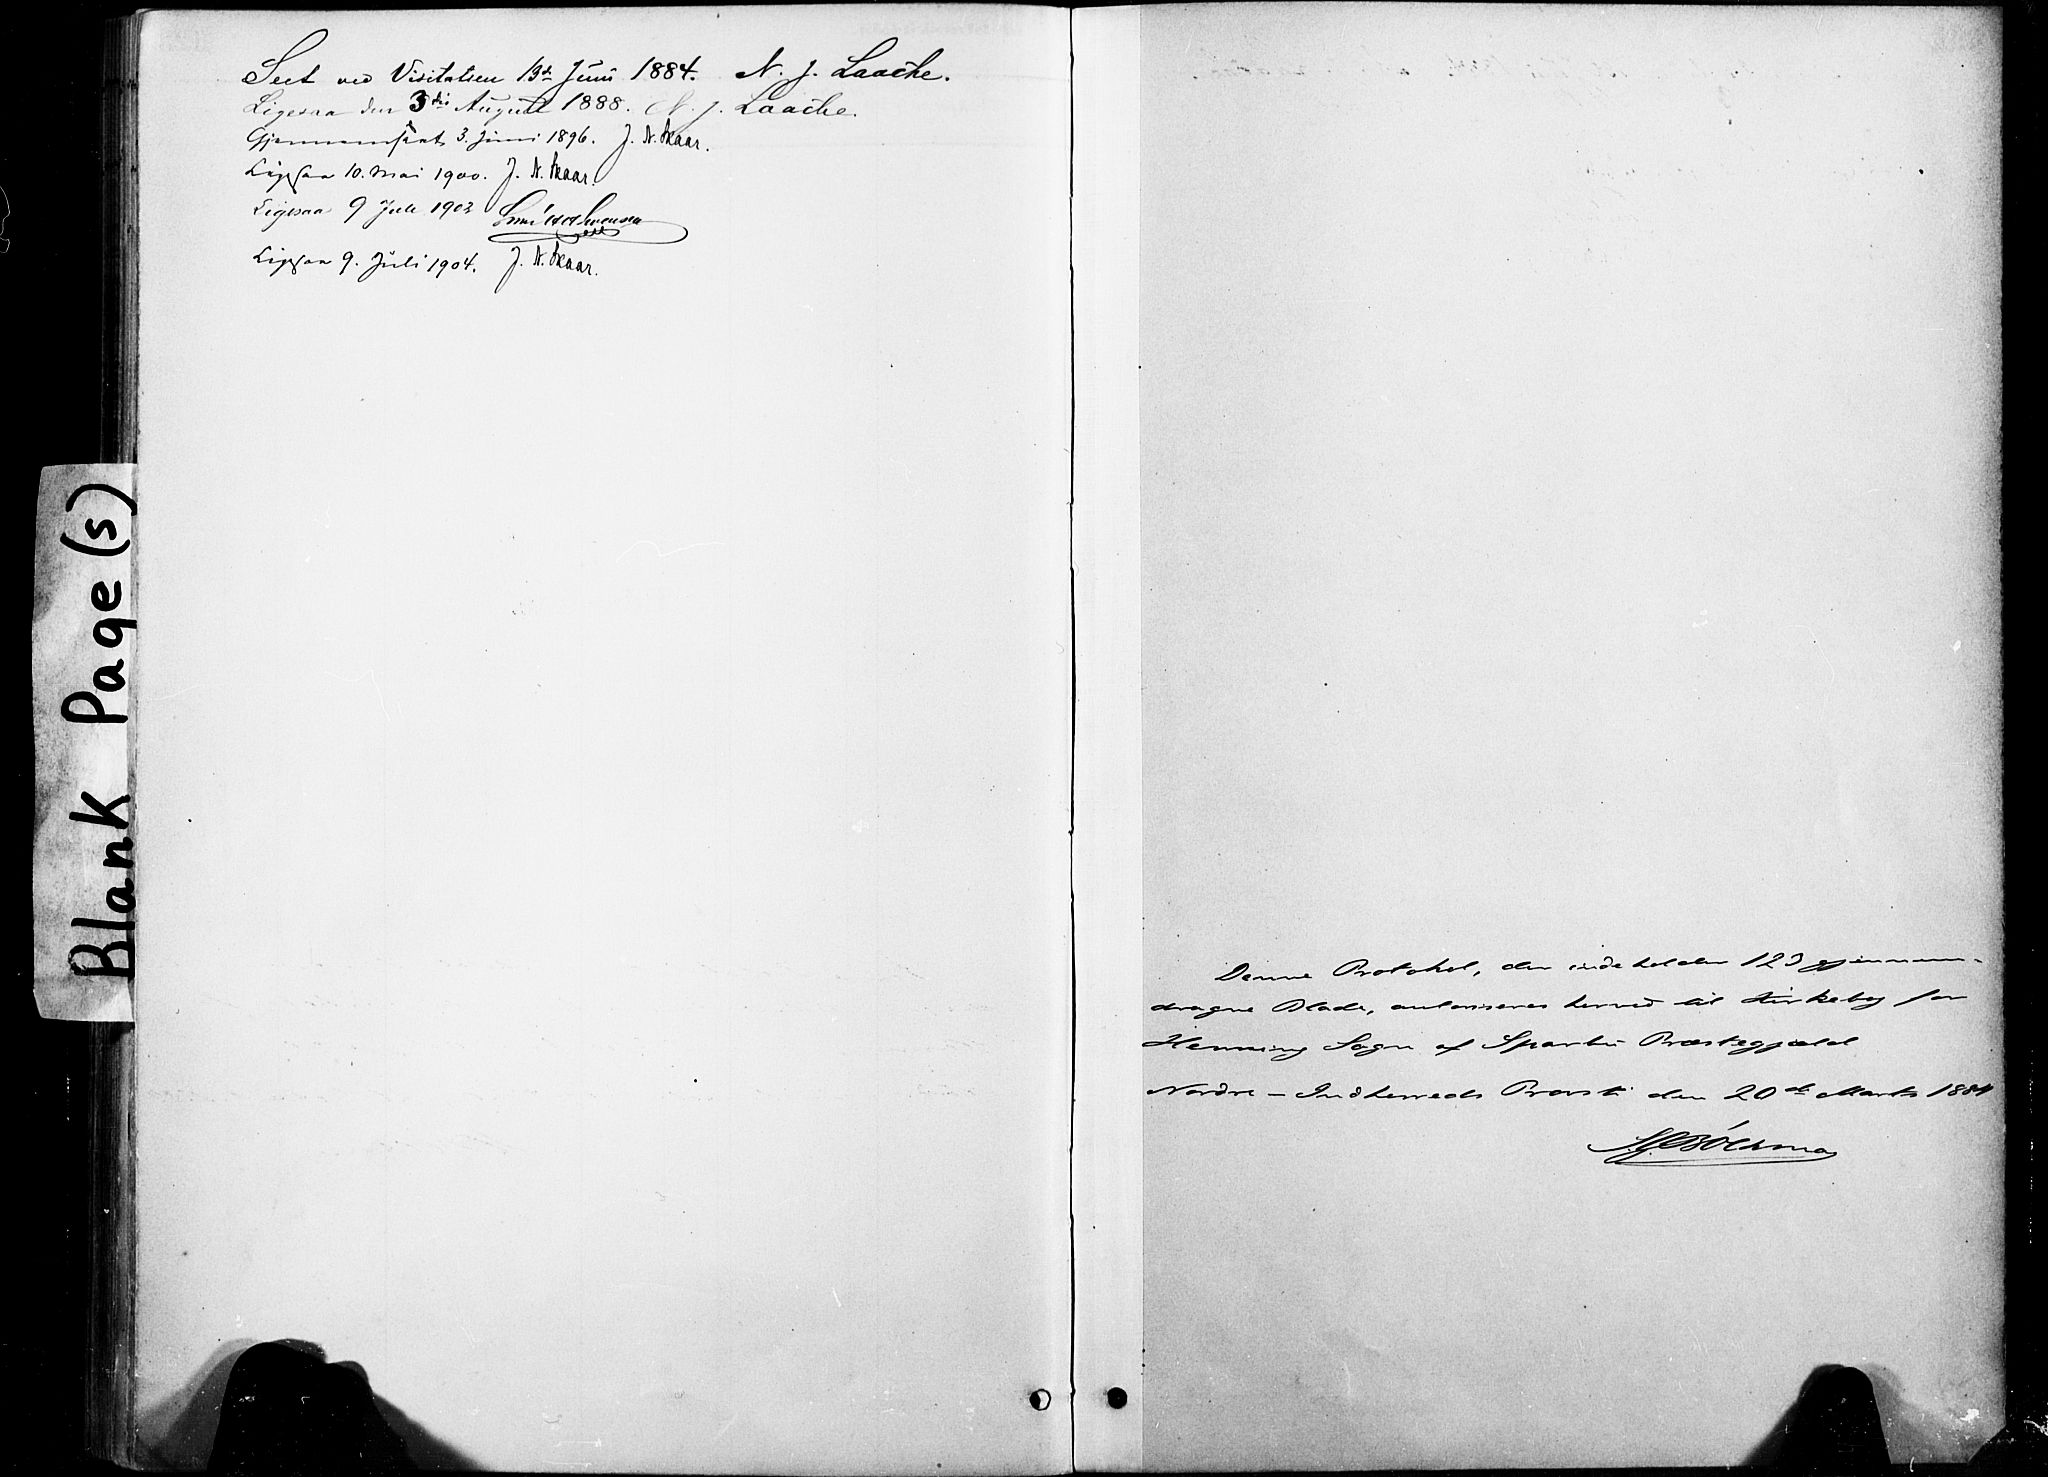 Seet ved Visitatsen 13de Juni 1884. N. J. Laache.
Ligesaa den 3die August 1888. N. J. Laache.
Gjennemseet 3. Juni 1896. J. N. Skaar.
Ligesaa 10. Mai 1900. J. N. Skaar.
Ligesaa 9 Juli 1902
Ligesaa 9. Juli 1904. J. N. Skaar.
Blank Page(s)
Denne Protokol, der indeholder 123 gjennem-
dragne Blade, autoriseres herved til Kirkebog for
Henning Sogn af Sparbu Præstegjæld
Nordre-Indherreds Provsti den 20de Marts 1884